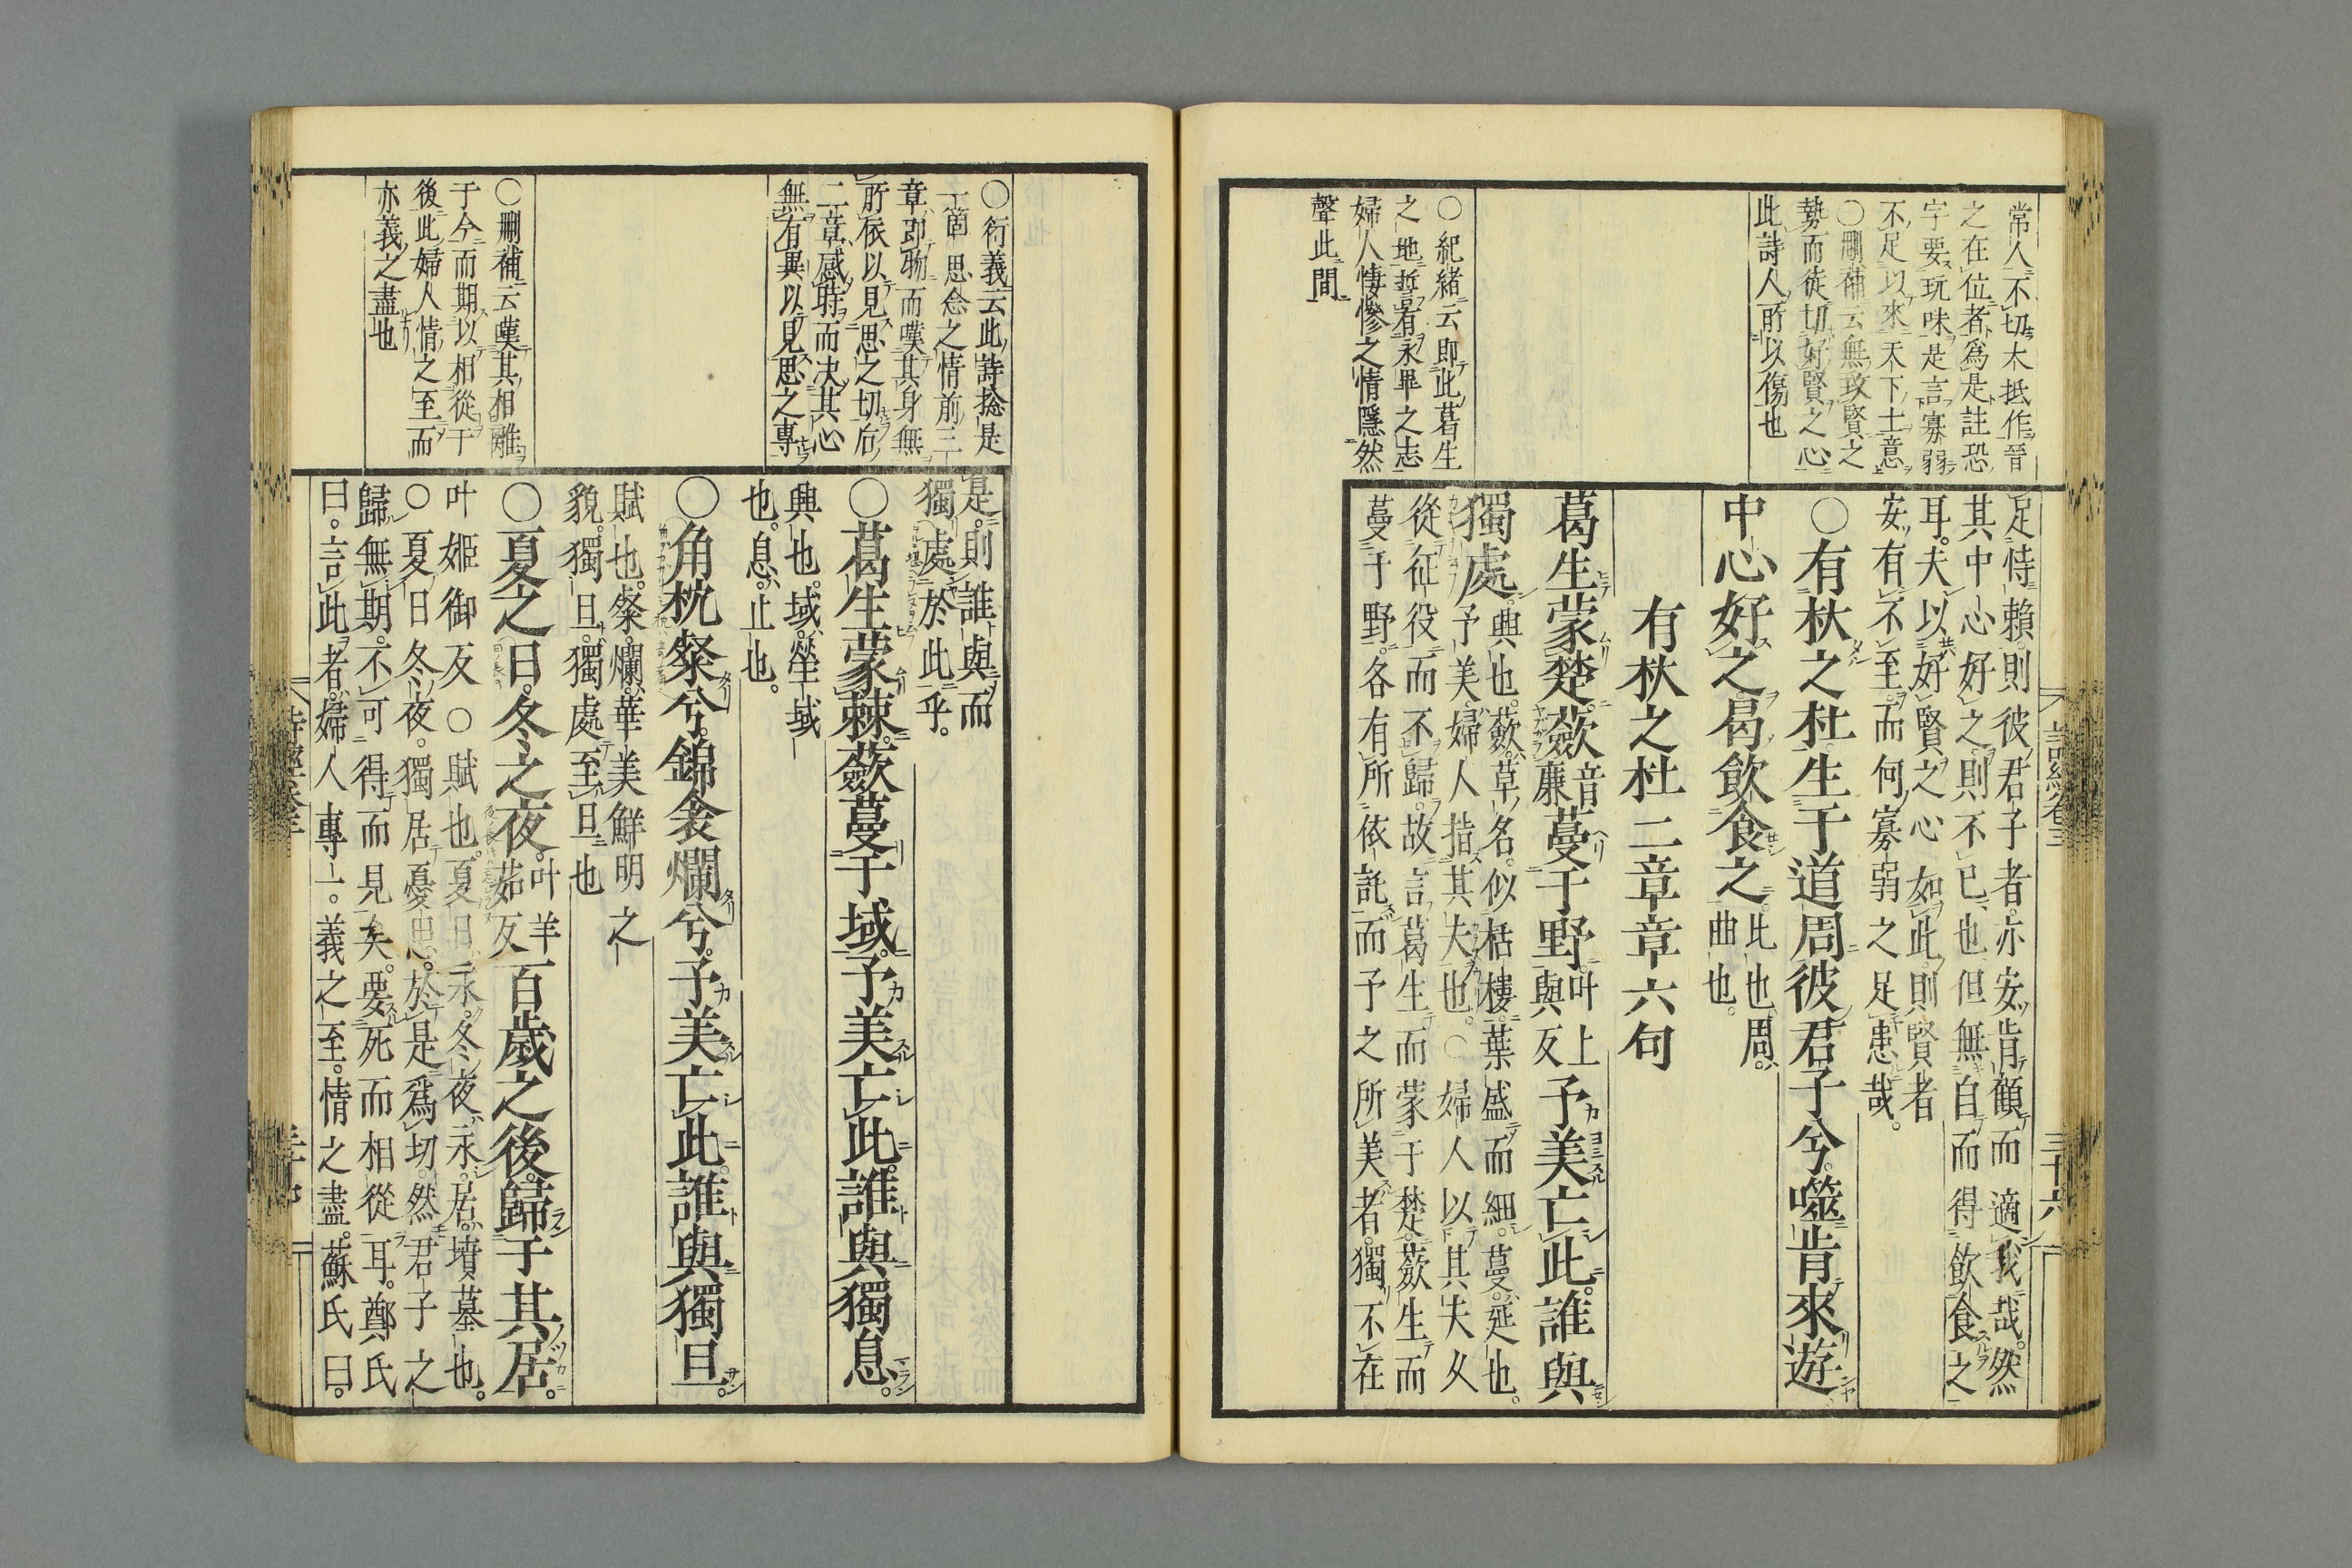 常人不切大抵作晉
之在位者為是註恐
字要玩味是言寡弱
不足以來天下士意
○刪補云無致賢之
勢而徒切好賢之心
此詩人所以傷也
○紀緒云即此葛生
之地誓有永畢之志
婦人悽慘之情隱然
聲此間
足恃賴。則彼君子者。亦安肯顧而適我哉。然
其中心好之。則不已也。但無自而得飲食之
耳。夫以好賢之心如此。則賢者
安有不至。而何寡弱之足患哉。
○有杕之杜生于道周彼君子兮。噬肯來遊。
中心好之曷飲食之比也。周。
曲也。
有杕之杜二章章六句
葛生蒙楚。蘞音
廉蔓于野叶上
與反予美亡此。誰與
獨處。興也。蘞。草名。似栝樓。葉盛而細。蔓。延也。
予美。婦人指其夫也。○婦人以其夫久
從征役而不歸。故言葛生而蒙于楚。蘞生而
蔓于野。各有所依託。而予之所美者。獨不在
詩經卷三
三十六
○衍義云此詩捴是
一箇思念之情前三
章即物而嘆其身無
所依以見思之切后
二章感時而决其心
無有異以見思之專
○刪補云嘆其相離
于今而期以相從于
後此婦人情之至而
亦義之盡也
是。則誰與而
獨處於此乎。
○葛生蒙棘。蘞蔓于域。予美亡此。誰與獨息。
興也。域。塋域
也。息。止也。
○角枕粲兮。錦衾爛兮。予美亡此。誰與獨旦。
賦也。粲。爛。華美鮮明之
貌。獨旦。獨處至旦也
○夏之日。冬之夜。叶羊
茹反百歲之後。歸于其居。
叶姬御反○賦也。夏日永。冬夜永。居。墳墓也。
○夏日冬夜。獨居憂思。於是為切。然君子之
歸無期。不可得而見矣。要死而相從耳。鄭氏
曰。言此者。婦人專一。義之至。情之盡。蘇氏曰。